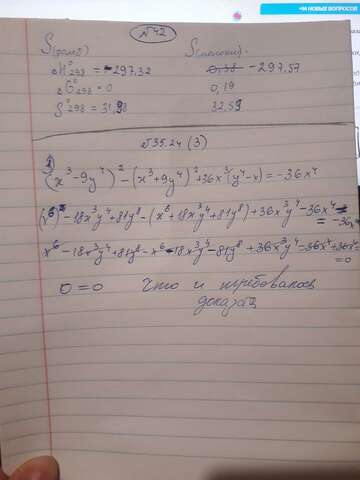 +14 НОВЫХ ВОПРОСОВ
№42
S(ромб) S(монокл)
ΔH°298 = -297,32 0,38 -297,57
ΔG°298 = 0 0,19
S°298 = 31,98 32,59
№35.24 (3)
(x³-9y⁴)² - (x³+9y⁴)² + 36x³(y⁴-x) = -36x⁴
-18x³y⁴+81y⁸-(x⁶+18x³y⁴+81y⁸)+36x³y⁴-36x⁴ = -36x⁴
x⁶-18x³y⁴+81y⁸-x⁶-18x³y⁴-81y⁸+36x³y⁴-36x⁴+36x⁴=
=0
0=0 Что и требовалось
доказать